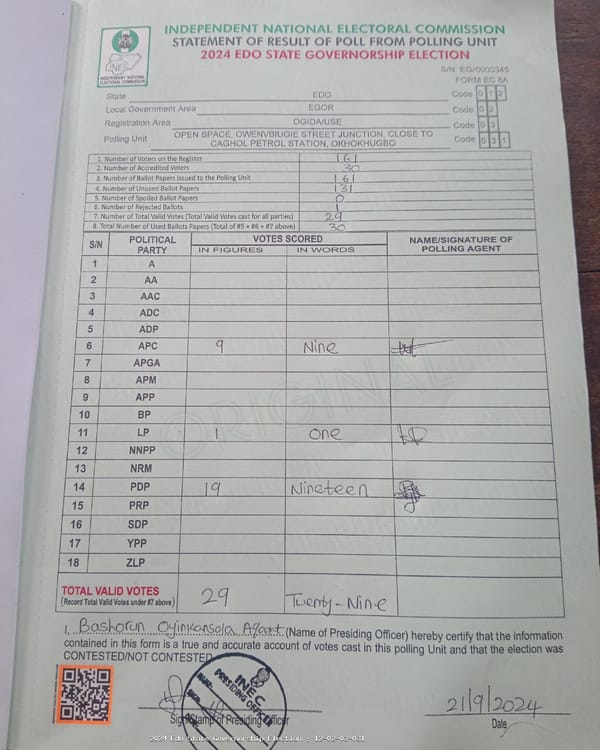 INDEPENDENT NATIONAL ELECTORAL COMMISSION
STATEMENT OF RESULT OF POLL FROM POLLING UNIT
2024 EDO STATE GOVERNORSHIP ELECTION
INEC
INDEPENDENT NATIONAL
ELECTORAL COMMISSION
S/N: EG/0000345
FORM EC 8A
State EDO Code 0 1 2
Local Government Area EGOR Code 0 2
Registration Area OGIDA/USE Code 0 3
Polling Unit OPEN SPACE, OWENVBIUGIE STREET JUNCTION, CLOSE TO CAGHOL PETROL STATION, OKHOKHUGBO Code 0 3 1
1. Number of Voters on the Register 161
2. Number of Accredited Voters 30
3. Number of Ballot Papers Issued to the Polling Unit 161
4. Number of Unused Ballot Papers 131
5. Number of Spoiled Ballot Papers 0
6. Number of Rejected Ballots 1
7. Number of Total Valid Votes (Total Valid Votes cast for all parties) 29
8. Total Number of Used Ballots Papers (Total of #5 + #6 + #7 above) 30
S/N POLITICAL PARTY VOTES SCORED NAME/SIGNATURE OF POLLING AGENT
IN FIGURES IN WORDS
1 A
2 AA
3 AAC
4 ADC
5 ADP
6 APC 9 Nine
7 APGA
8 APM
9 APP
10 BP
11 LP 1 One
12 NNPP
13 NRM
14 PDP 19 Nineteen
15 PRP
16 SDP
17 YPP
18 ZLP
ORIGINAL
TOTAL VALID VOTES 29 Twenty-Nine
(Record Total Valid Votes under #7 above)
I, Bashorun Oyinkansola (Name of Presiding Officer) hereby certify that the information
contained in this form is a true and accurate account of votes cast in this polling Unit and that the election was
CONTESTED/NOT CONTESTED
INEC
PRESIDING OFFICER
Sign/Stamp of Presiding Officer
21/9/2024
Date
2024 Edo State Governorship Election : 12-02-03-031